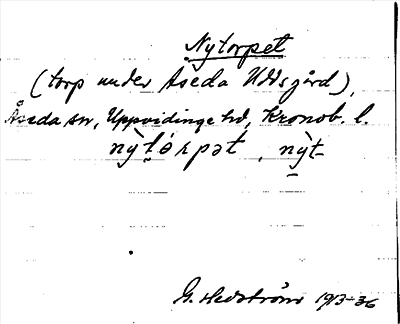 Nytorpet
(torp under Åseda Uddsgård),
Åseda sn, Uppvidinge hd, Kronob. l.
nỳtórpət, nỳt-
G. Hedström 1913-36